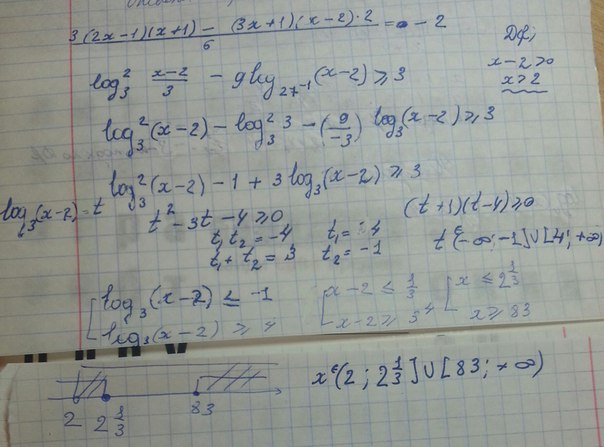 3(2x-1)(x+1) - (3x+1)(x-2)·2 / 6 = - 2
Df:
x-2>0
x>2
log₃² (x-2)/3 - 9log₂₇₋₁(x-2) ≥ 3
log₃²(x-2) - log₃² 3 - (9/-3) log₃(x-2) ≥ 3
log₃²(x-2) - 1 + 3log₃(x-2) ≥ 3
log₃(x-2) = t
t² - 3t - 4 ≥ 0
(t+1)(t-4) ≥ 0
t₁t₂ = -4
t₁ = 4
t₁ + t₂ = 3
t₂ = -1
t ∈ (-∞; -1] ∪ [4; +∞)
[ log₃(x-2) ≤ -1
log₃(x-2) ≥ 4
[ x-2 ≤ 1/3
x-2 ≥ 3⁴
[ x ≤ 2 1/3
x ≥ 83
2
2 1/3
83
x ∈ (2; 2 1/3] ∪ [83; +∞)